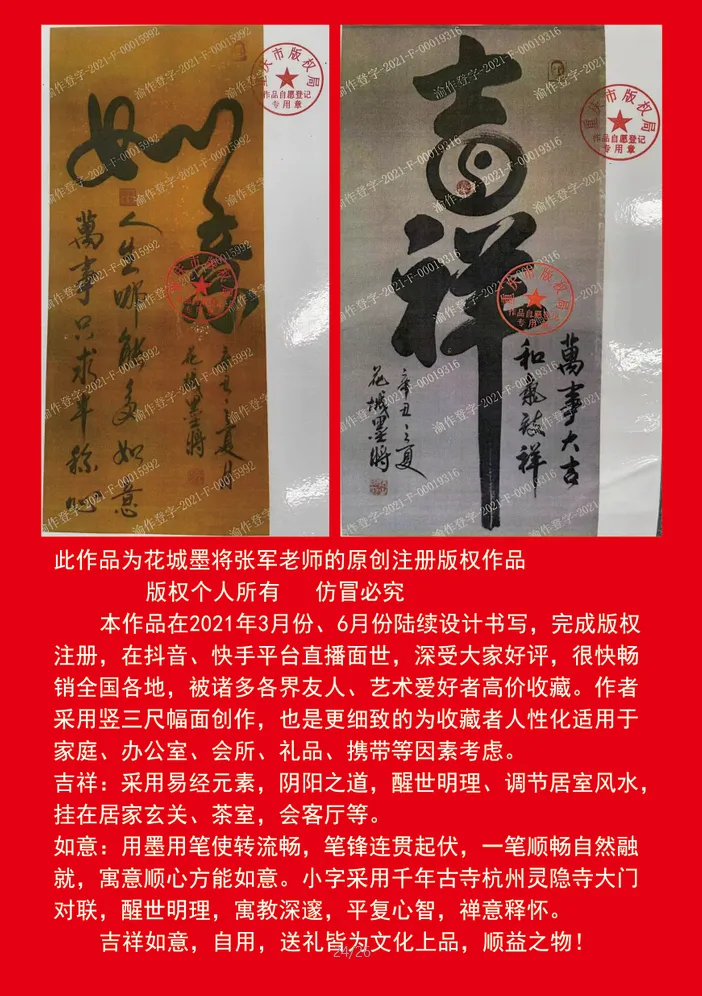 如意
人生哪能多如意
萬事只求半稱心
辛丑之夏月
花城墨將
渝作登字-2021-F-00015992
重庆市版权局
作品自愿登记
专用章
吉祥
萬事大吉
和氣致祥
辛丑之夏
花城墨將
渝作登字-2021-F-00019316
重庆市版权局
作品自愿登记
专用章
此作品为花城墨将张军老师的原创注册版权作品
版权个人所有 仿冒必究
本作品在2021年3月份、6月份陆续设计书写，完成版权
注册，在抖音、快手平台直播面世，深受大家好评，很快畅
销全国各地，被诸多各界友人、艺术爱好者高价收藏。作者
采用竖三尺幅面创作，也是更细致的为收藏者人性化适用于
家庭、办公室、会所、礼品、携带等因素考虑。
吉祥：采用易经元素，阴阳之道，醒世明理、调节居室风水，
挂在居家玄关、茶室，会客厅等。
如意：用墨用笔使转流畅，笔锋连贯起伏，一笔顺畅自然融
就，寓意顺心方能如意。小字采用千年古寺杭州灵隐寺大门
对联，醒世明理，寓教深邃，平复心智，禅意释怀。
吉祥如意，自用，送礼皆为文化上品，顺益之物！
24/26